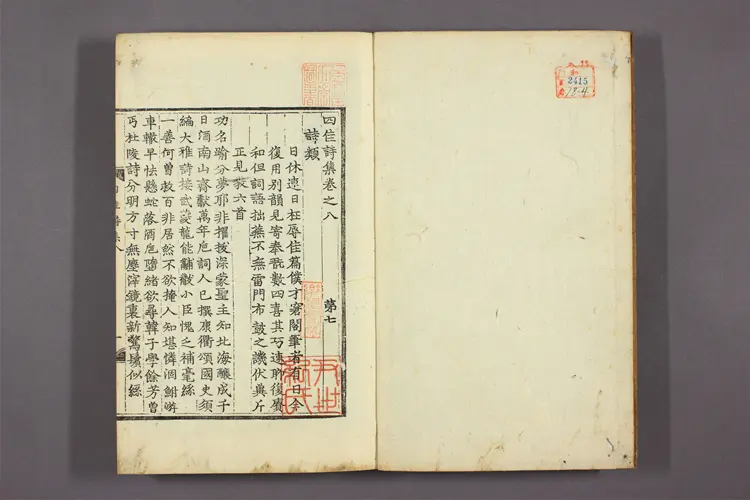 四佳詩集卷之八
詩類 第七
日休連日枉辱佳篇僕才窘閣筆者有日今
復用別韻見寄奉翫數四喜其巧速聊復賡
和但詞語拙蕪不無雷門布鼓之譏伏冀斤
正見教六首
功名喻分夢耶非擢拔深蒙聖主知北海釀成千
日酒南山齋獻萬年卮詞人已撰康衢頌國史須
編大雅詩接武夔龍能黼黻小臣愧乏補毫絲
一善何曾救百非居然不欲掩人知堪憐涸鮒
車轍早怯懸蛇落酒卮墮緖欲尋韓子學餘芳曾
丐杜陵詩分明方寸無塵滓鏡裏新驚鬢似絲
2415
78-4